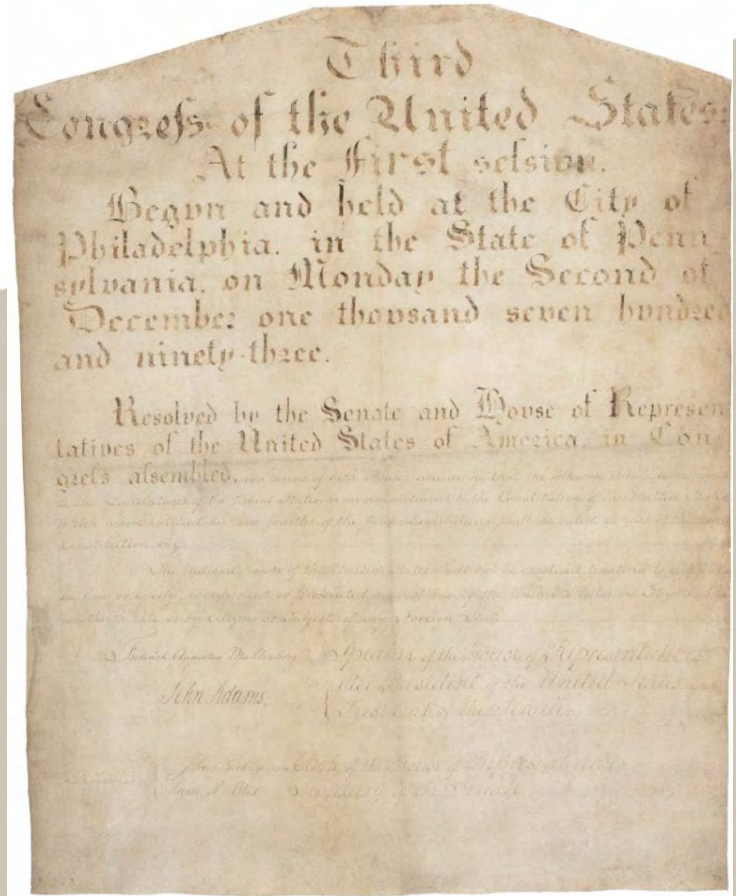 Third
Congress of the United States:
At the First session.
Begun and held at the City of
Philadelphia. in the State of Penn
sylvania. on Monday the Second of
December one thousand seven hundred
and ninety-three.
Resolved by the Senate and House of Represen
tatives of the United States of America. in Con
gress assembled, two thirds of both Houses concurring, that the following
Legislatures of the several States, as an amendment to the Constitution of the United States
when ratified by three fourths of the said Legislatures shall be valid as part of the said
Constitution viz.
The Judicial Power of the United States shall not be construed to extend to any suit
in law or equity, commenced or prosecuted against one of the United States by Citizens of
another State or by Citizens or Subjects of any Foreign State.
Frederick Augustus Muhlenberg Speaker of the House of Representatives
John Adams, Vice President of the United States and
President of the Senate
John Beckley Clerk of the House of Representatives
Sam. A. Otis Secretary of the Senate